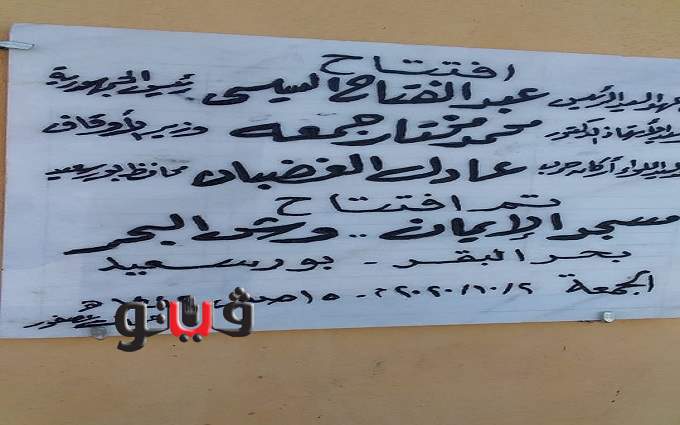 افتتاح
عهد السيد الرئيس عبد الفتاح السيسى رئيس الجمهورية
محمد مختار جمعه وزير الأوقاف
اللواء أركان حرب عادل الغضبان محافظ بورسعيد
تم افتتاح
مسجد الإيمان .. ورش البحر
بحر البقر - بورسعيد
الجمعة ٢٠٢٠/١٠/٢م - ١٥ صفر
ڤيتو